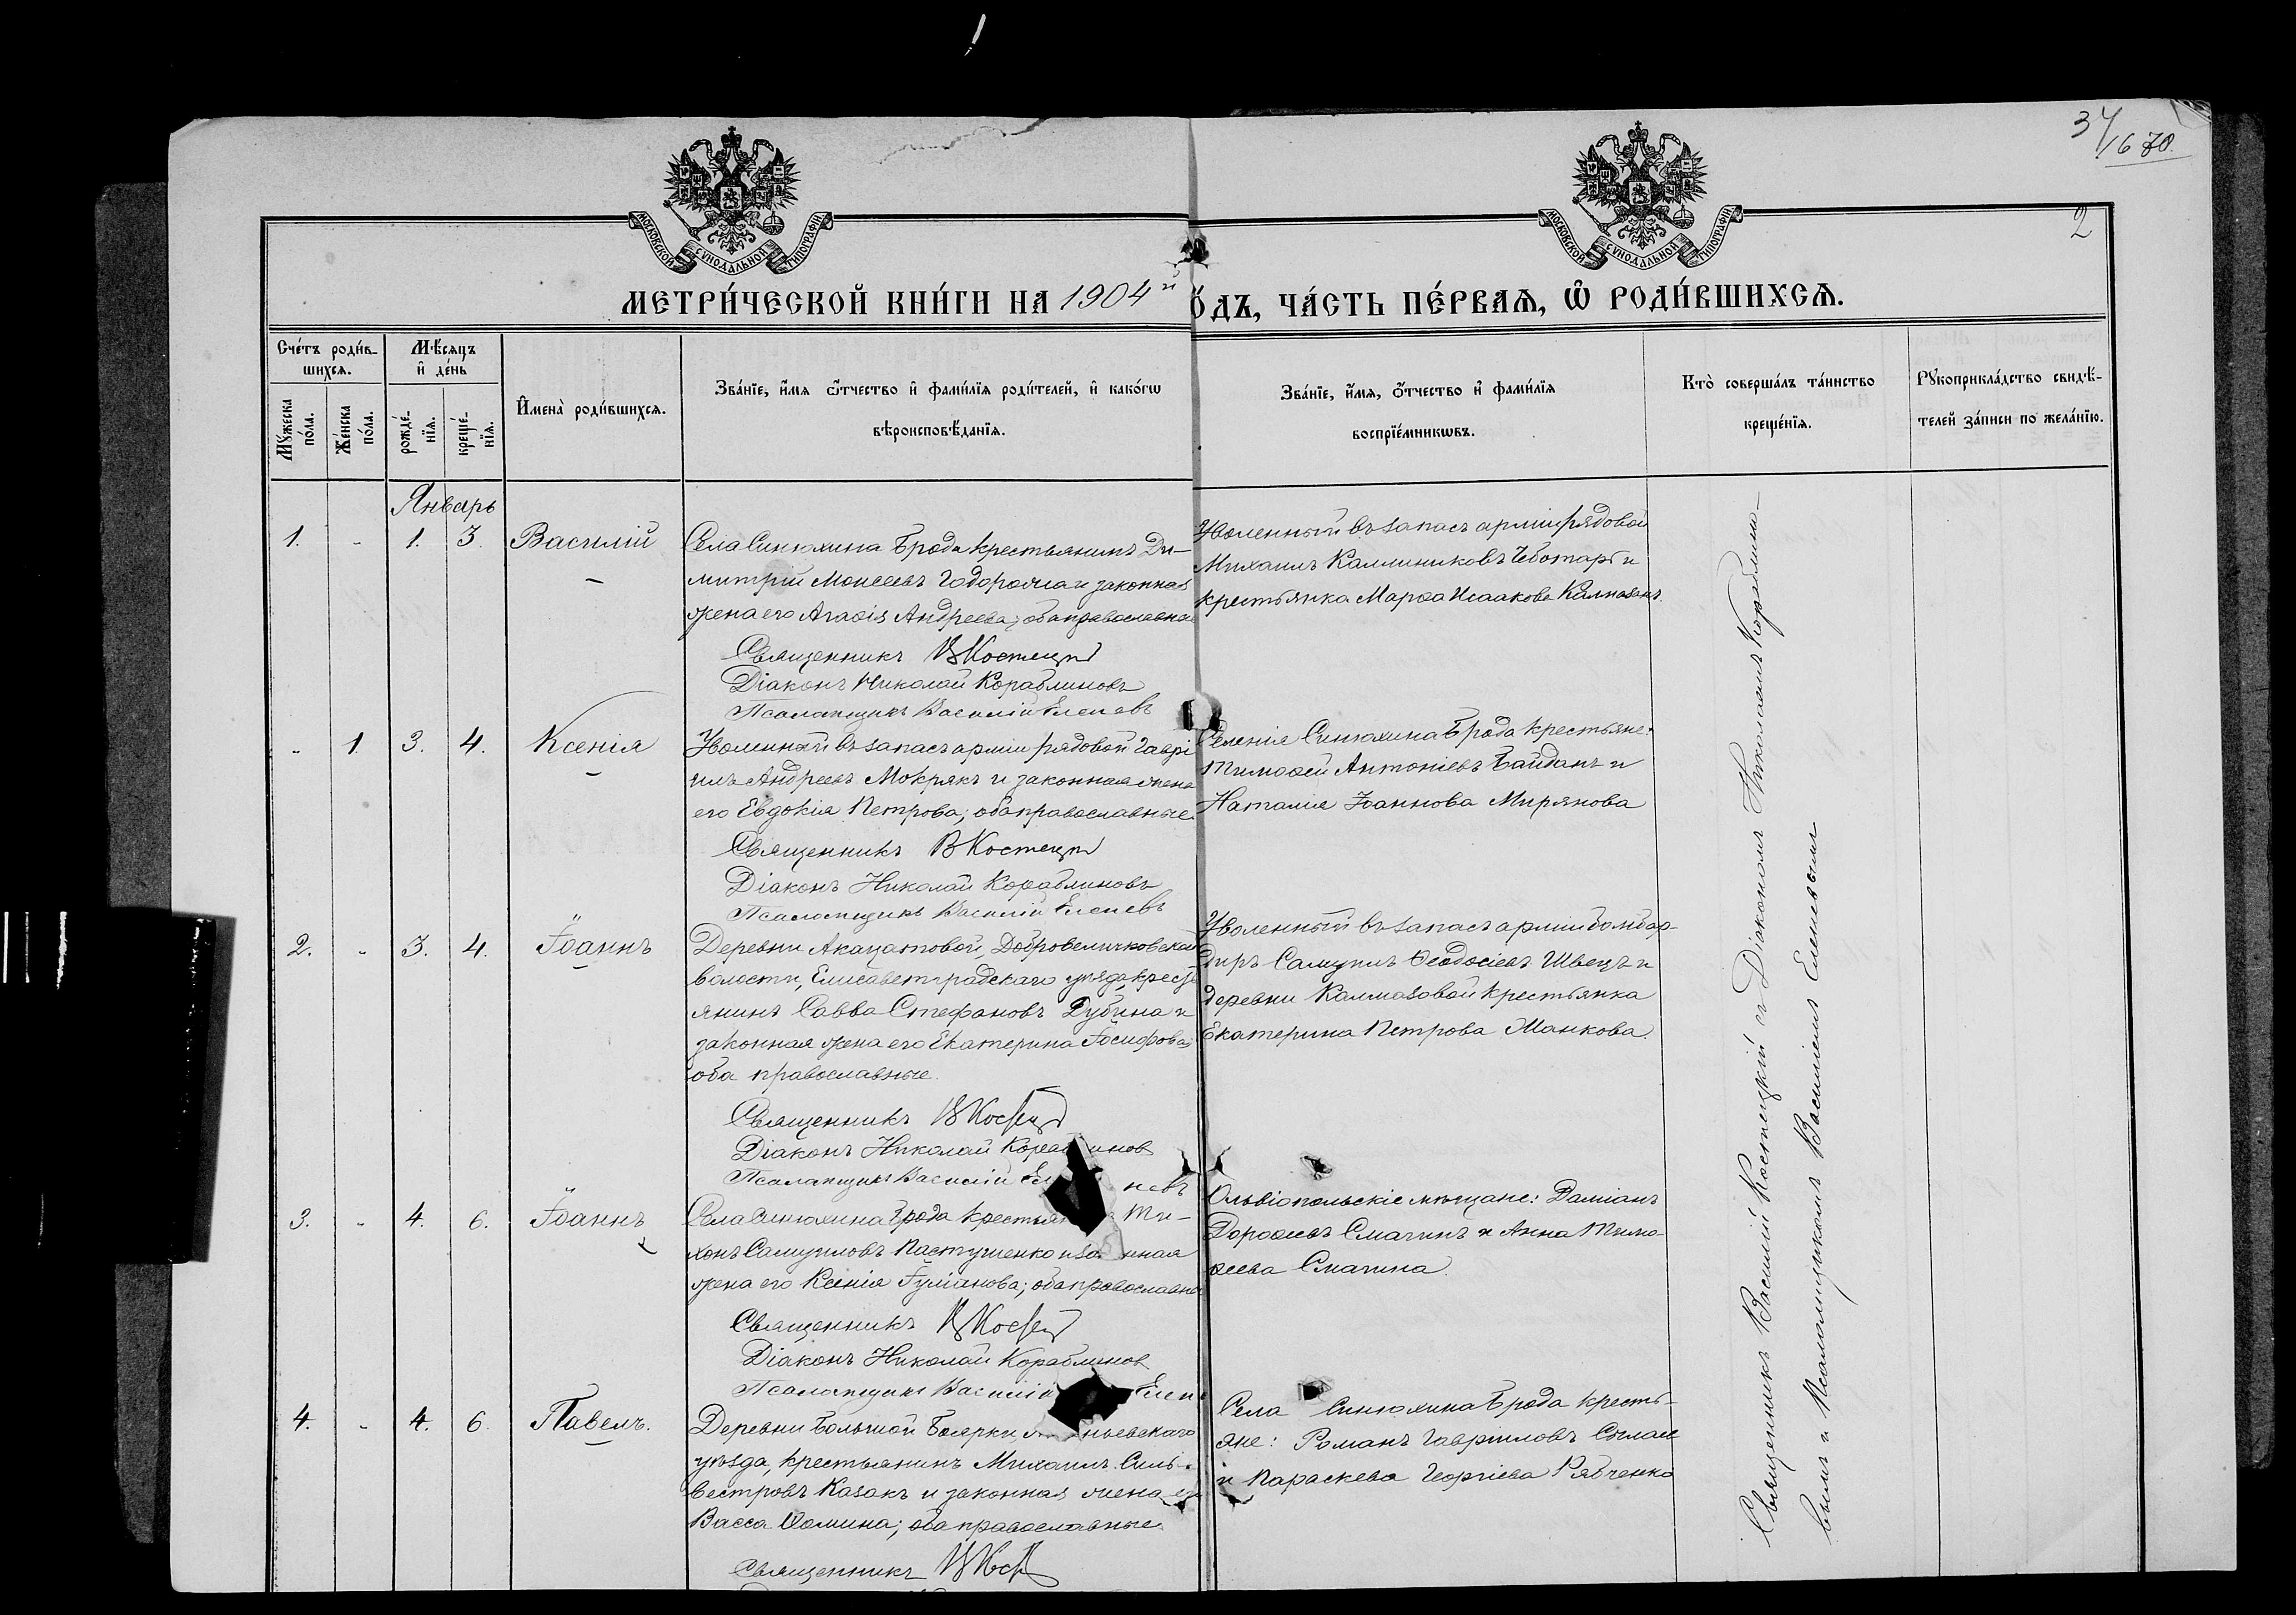 34/1670.
2
МОСКОВСКОЙ СѴНОДАЛЬНОЙ ТИПОГРАФІИ
МОСКОВСКОЙ СѴНОДАЛЬНОЙ ТИПОГРАФІИ
МЕТРИ́ЧЕСКОЙ КНИ́ГИ НА 1904й
ОДЪ, ЧА́СТЬ ПЕ́РВАѦ, Ѿ РОДИ́ВШИХСѦ.
Сче́тъ роди́в-
шихсѧ.
Мꙋжеска по́ла.
Же́нска по́ла.
Мѣ́сѧцъ
и҆ де́нь
рожде́-
нїѧ.
креще́-
нїѧ.
И҆мена̀ роди́вшихсѧ.
Зва́нїе, и҆́мѧ ѻ҆́тчество и҆ фами́лїѧ роди́телей, и҆ како́гѡ
вѣроисповѣ́данїѧ.
Зва́нїе, и҆́мѧ, ѻ҆́тчество и҆ фами́лїѧ
воспрїе́мникѡвъ.
Кто̀ соверша́лъ та́инство
креще́нїѧ.
Рꙋкоприкла́дство свидѣ́-
телей за́писи по жела́нїю.
Январь
1. - 1. 3. Василій
Села Синюхина Брода крестьянинъ Ди-
митрій Моисеевъ Тодорожа и законная
жена его Агаѳія Андреева; оба православные
Священникъ В Костецкі
Діаконъ Николай Кораблиновъ
Псаломщикъ Василій Еленевъ
Уволенный въ запасъ арміи рядовой
Михаилъ Каллиниковъ Чеботарь и
крестьянка Марѳа Исаакова
- 1 3. 4. Ксенія
Уволенный въ запасъ арміи рядовой Гаврі
илъ Андреевъ Мокрякъ и законная жена
его Евдокія Петрова; оба православные.
Священникъ В Костецкі
Діаконъ Николай Кораблиновъ
Псаломщикъ Василій Еленевъ
Селенія Синюхина Брода крестьяне:
Тимоѳей Антоніевъ Байданъ и
Наталія Іоаннова Мирянова
2. - 3. 4. Іоаннъ
Деревни Акацатовой, Добровеличковской
волости, Елисаветградскаго уѣзда, крестъ
янинъ Савва Стефановъ Дубина и
законная жена его Екатерина Іосифова
оба православные.
Священникъ В Костецк
Діаконъ Николай Кораблинов
Псаломщикъ Василій Ел невъ
Уволенный въ запасъ арміи бомбар-
диръ Самуилъ Ѳеодосіевъ Швецъ и
деревни Калмазовой крестьянка
Екатерина Петрова Манкова.
3. - 4. 6. Іоаннъ
Села Синюхина Брода крестьян Ти-
хонъ Самуиловъ Пастушенко и за нная
жена его Ксенія Іуліанова; оба православны
Священникъ В Костец
Діаконъ Николай Кораблинов
Псаломщикъ Василій Елен
Ольвіопольскіе мѣщане: Даміанъ
Дороѳеевъ Смагинъ и Анна Тимо-
ѳеева Смагина.
4. - 4. 6. Павелъ.
Деревни Большой Боярки ньевскаго
уѣзда, крестьянинъ Михаилъ Силь-
вестровъ Казакъ и законная жена ег
Васса Ѳомина; оба православные.
Священникъ В Кост
Села Синюхина Брода кресть-
яне: Романъ Гавриловъ
и Параскева Георгіева Рябченко
Священникъ Василій Костецкій съ Діакономъ Николаемъ Кораблино-
вымъ и Псаломщикомъ Василіемъ Еленевымъ